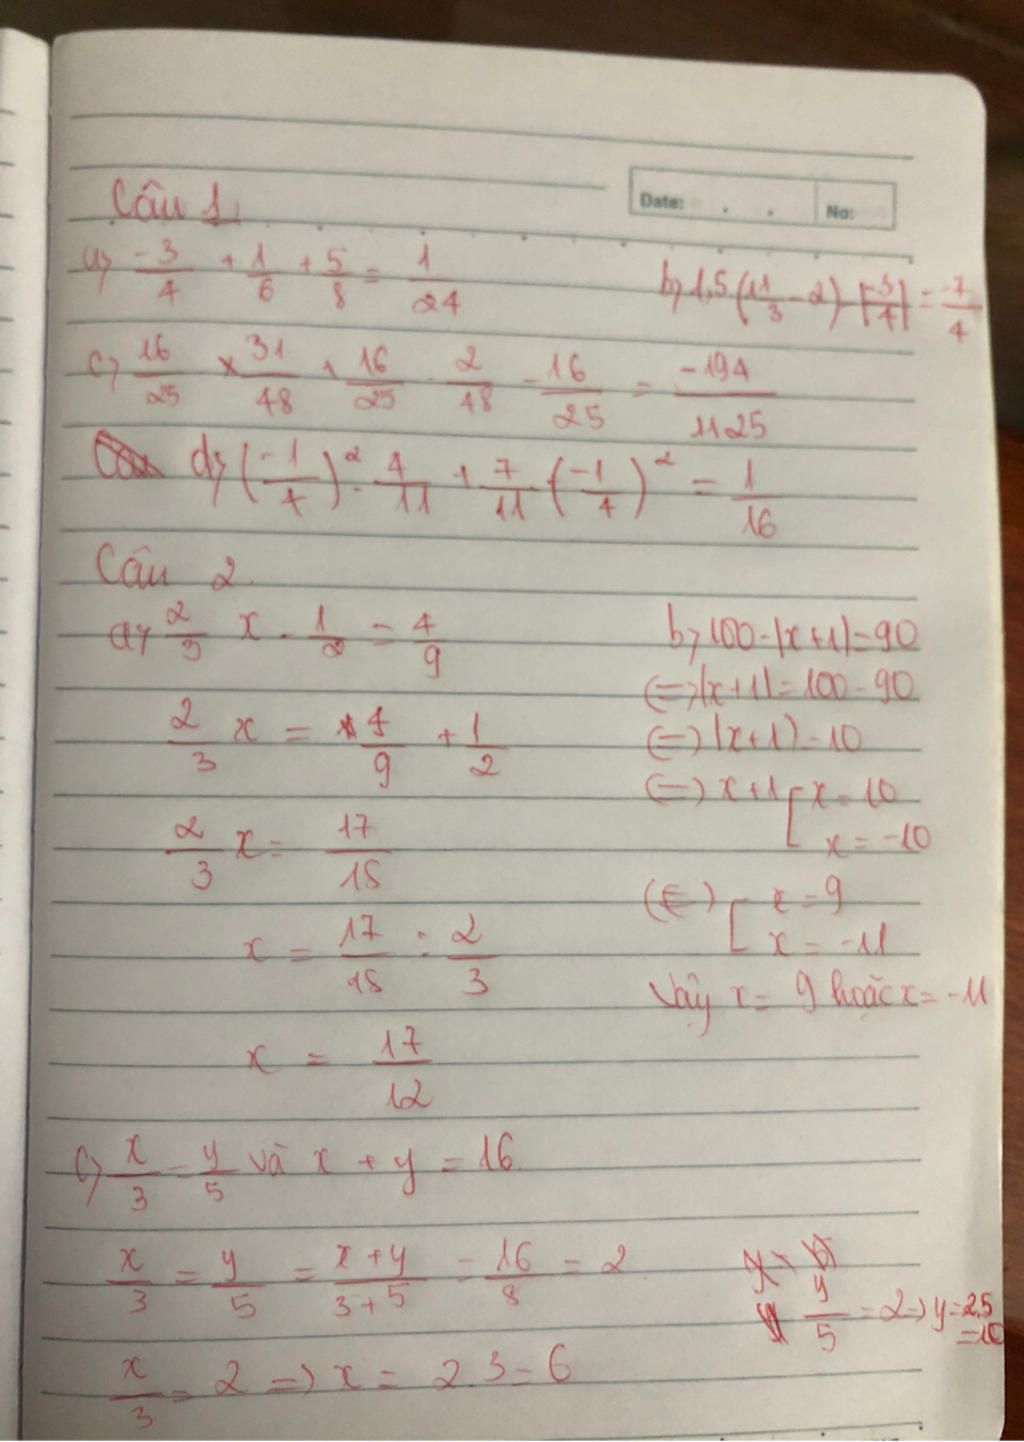 Date: . . No:
Câu 1
a) -3/4 + 1/6 + 5/8 = 1/24
b) 1,5 (11/3 - 2) - |-3/4| = -7/4
c) 16/25 × 31/48 + 16/25 . 2/48 - 16/25 = -194/1125
d) (-1/4)² . 4/11 + 7/11 . (-1/4)² = 1/16
Câu 2
a) 2/3 x - 1/2 = 4/9
2/3 x = 4/9 + 1/2
2/3 x = 17/18
x = 17/18 : 2/3
x = 17/12
b) 100 - |x + 1| = 90
(=) |x + 1| = 100 - 90
(=) |x + 1| = 10
(=) x + 1 [ x = 10
x = -10
(=) [ x = 9
x = -11
Vậy x = 9 hoặc x = -11
c) x/3 = y/5 và x + y = 16
x/3 = y/5 = x + y/3 + 5 = 16/8 = 2
x/3 = 2 => x = 2.3 = 6
y/5 = 2 => y = 2.5
= 10